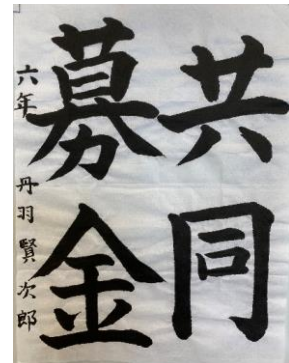 共同
募金
六年 丹羽賢次郎